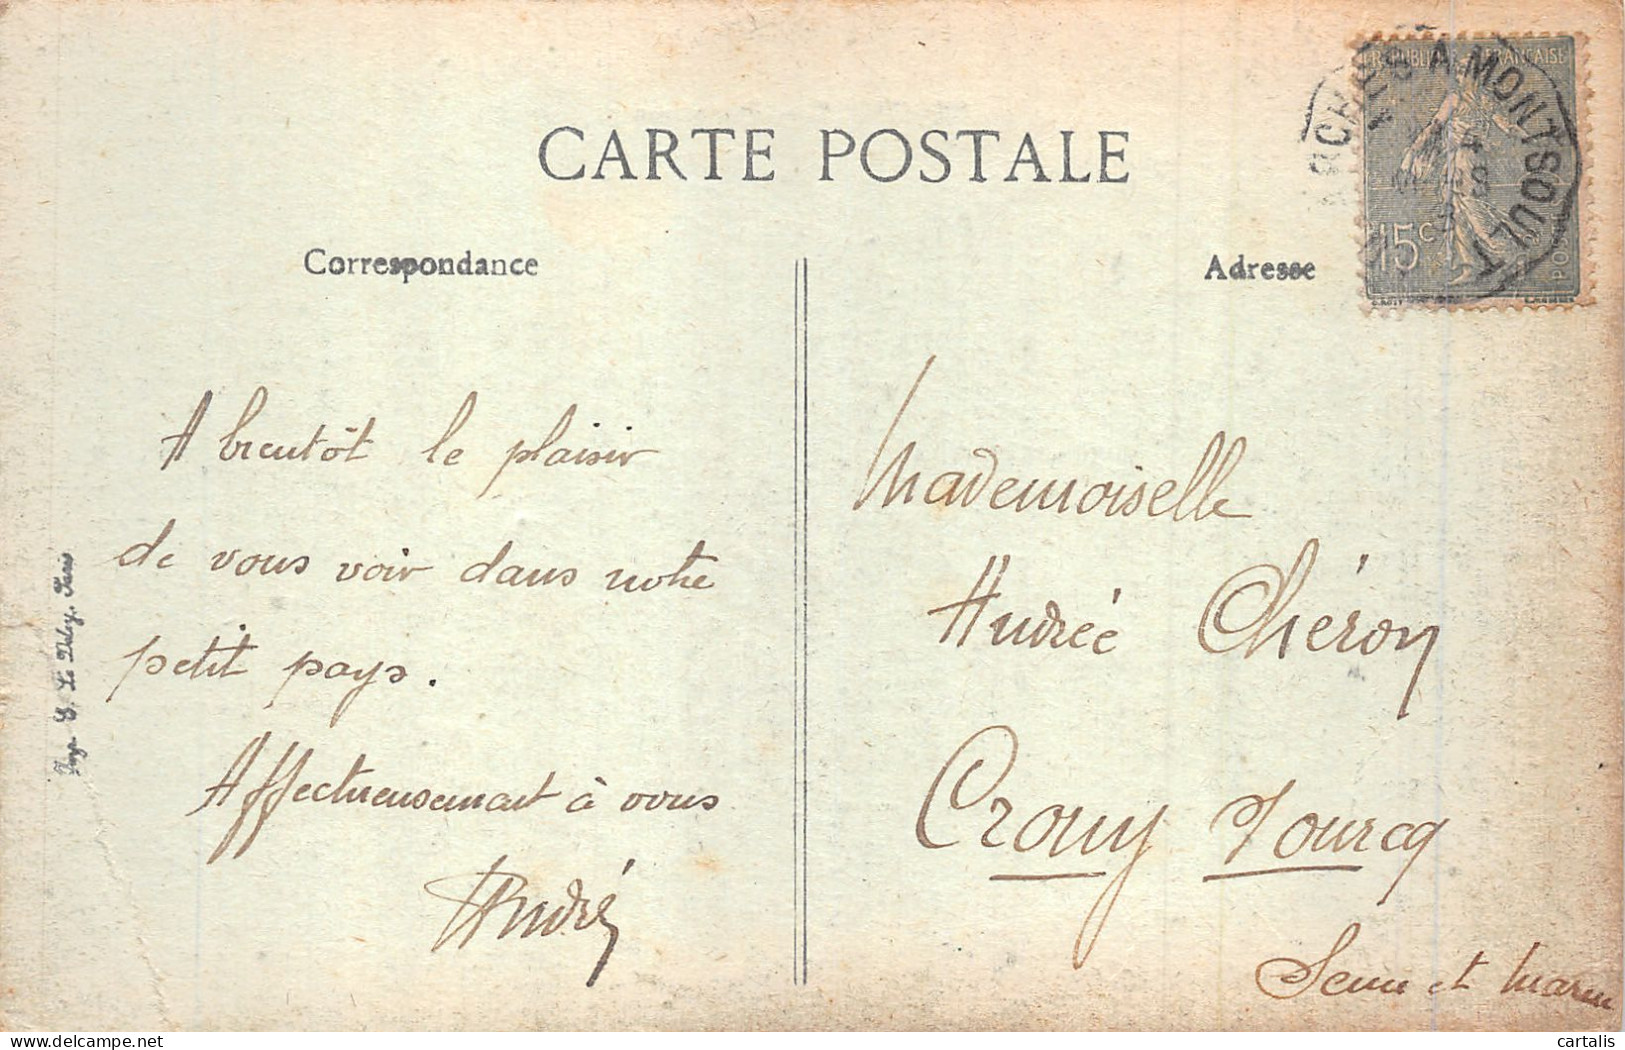 CARTE POSTALE
Correspondance
Adresse
REPUBLIQUE FRANÇAISE
15c
A MONTSOULT
A bientôt le plaisir
de vous voir dans notre
petit pays.
Affectueusement à vous
André
Imp. E. Le Deley, Paris
Mademoiselle
Andrée Chéron
Crouy s/ourcq
Seine et Marne
cartalis